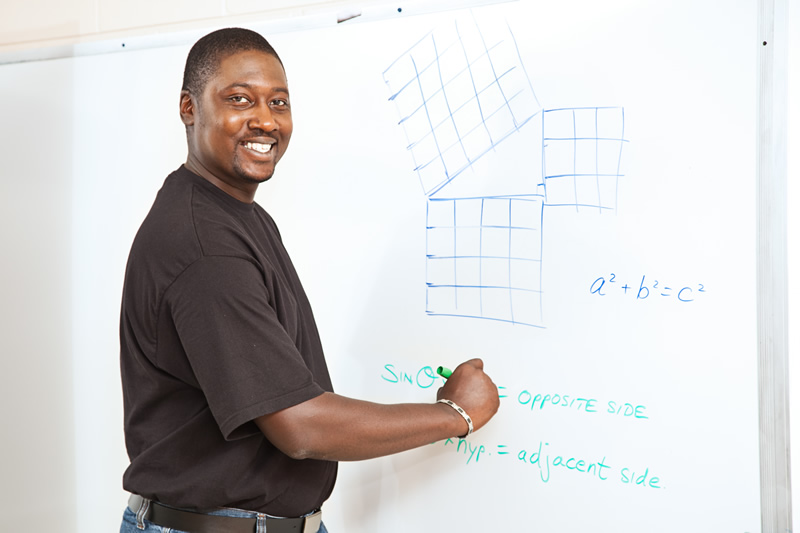 a² + b² = c²
SIN θ = OPPOSITE SIDE
x hyp. = adjacent side.